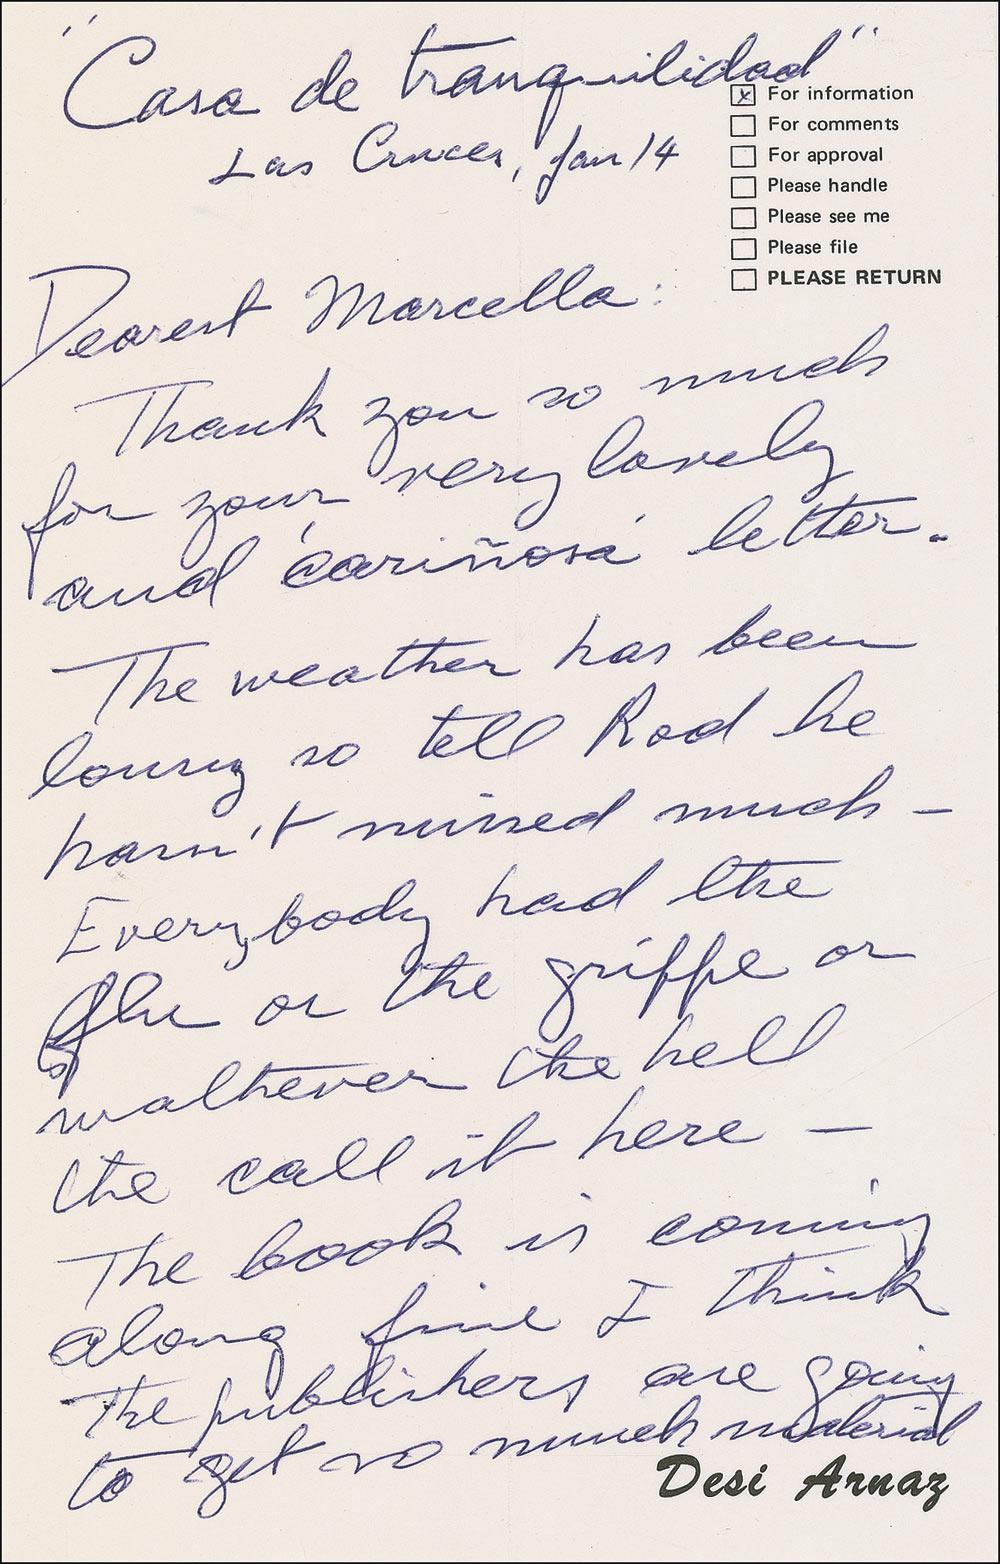 "Casa de tranquilidad"
☒ For information
☐ For comments
Las Cruces, Jan 14
☐ For approval
☐ Please handle
☐ Please see me
☐ Please file
☐ PLEASE RETURN
Dearest Marcella:
Thank you so much
for your very lovely
and 'cariñosa' letter.
The weather has been
lousy so tell Rod he
hasn't missed much —
Everybody had the
flu or the griffe or
walhever the hell
the call it here —
The book is coming
along fine I think
the publishers are going
to get so much material
Desi Arnaz